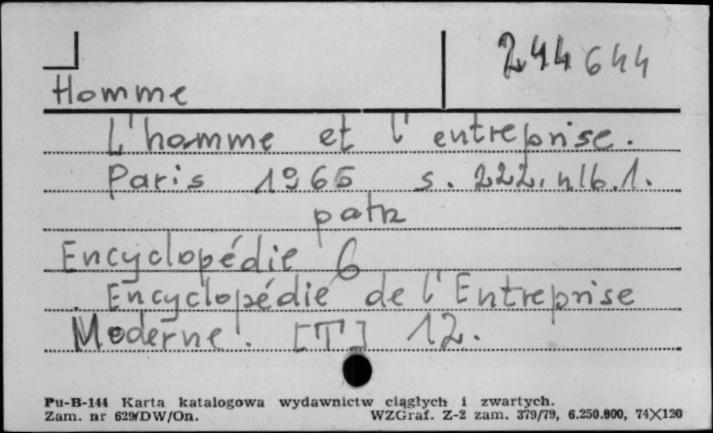 244644
Homme
L'homme et l'entreprise.
Paris 1966 s. 222, nlb. 1.
patrz
Encyclopédie 6
Encyclopédie de l'Entreprise
Moderne. [T] 12.
Pu-B-144 Karta katalogowa wydawnictw ciągłych i zwartych.
Zam. nr 629/DW/On. WZGraf. Z-2 zam. 379/79, 6.250.000, 74×120